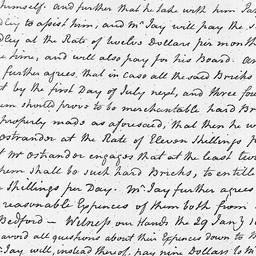 himself. and further that he take with him
dley to assist him, and Mr Jay will pay the s
dley at the Rate of twelve Dollars per month
e hire, and will also pay for his Board. An
further agrees, that in case all the said Bricks
t by the first Day of July next, and three fou
em should prove to be merchantable hard Br
properly made as aforesaid, that then he w
ostrander at the Rate of Eleven Shillings p
t Mr Ostrander engages that at the least two
hem shall be such hard Bricks, to entitle
Shillings per Day. Mr Jay further agrees
reasonable Expences of them both from
Bedford — Witness our Hands the 29 Jany 1
avoid all questions about their Expences down to
Jay will, instead thereof, pay nine Dollars to Mr